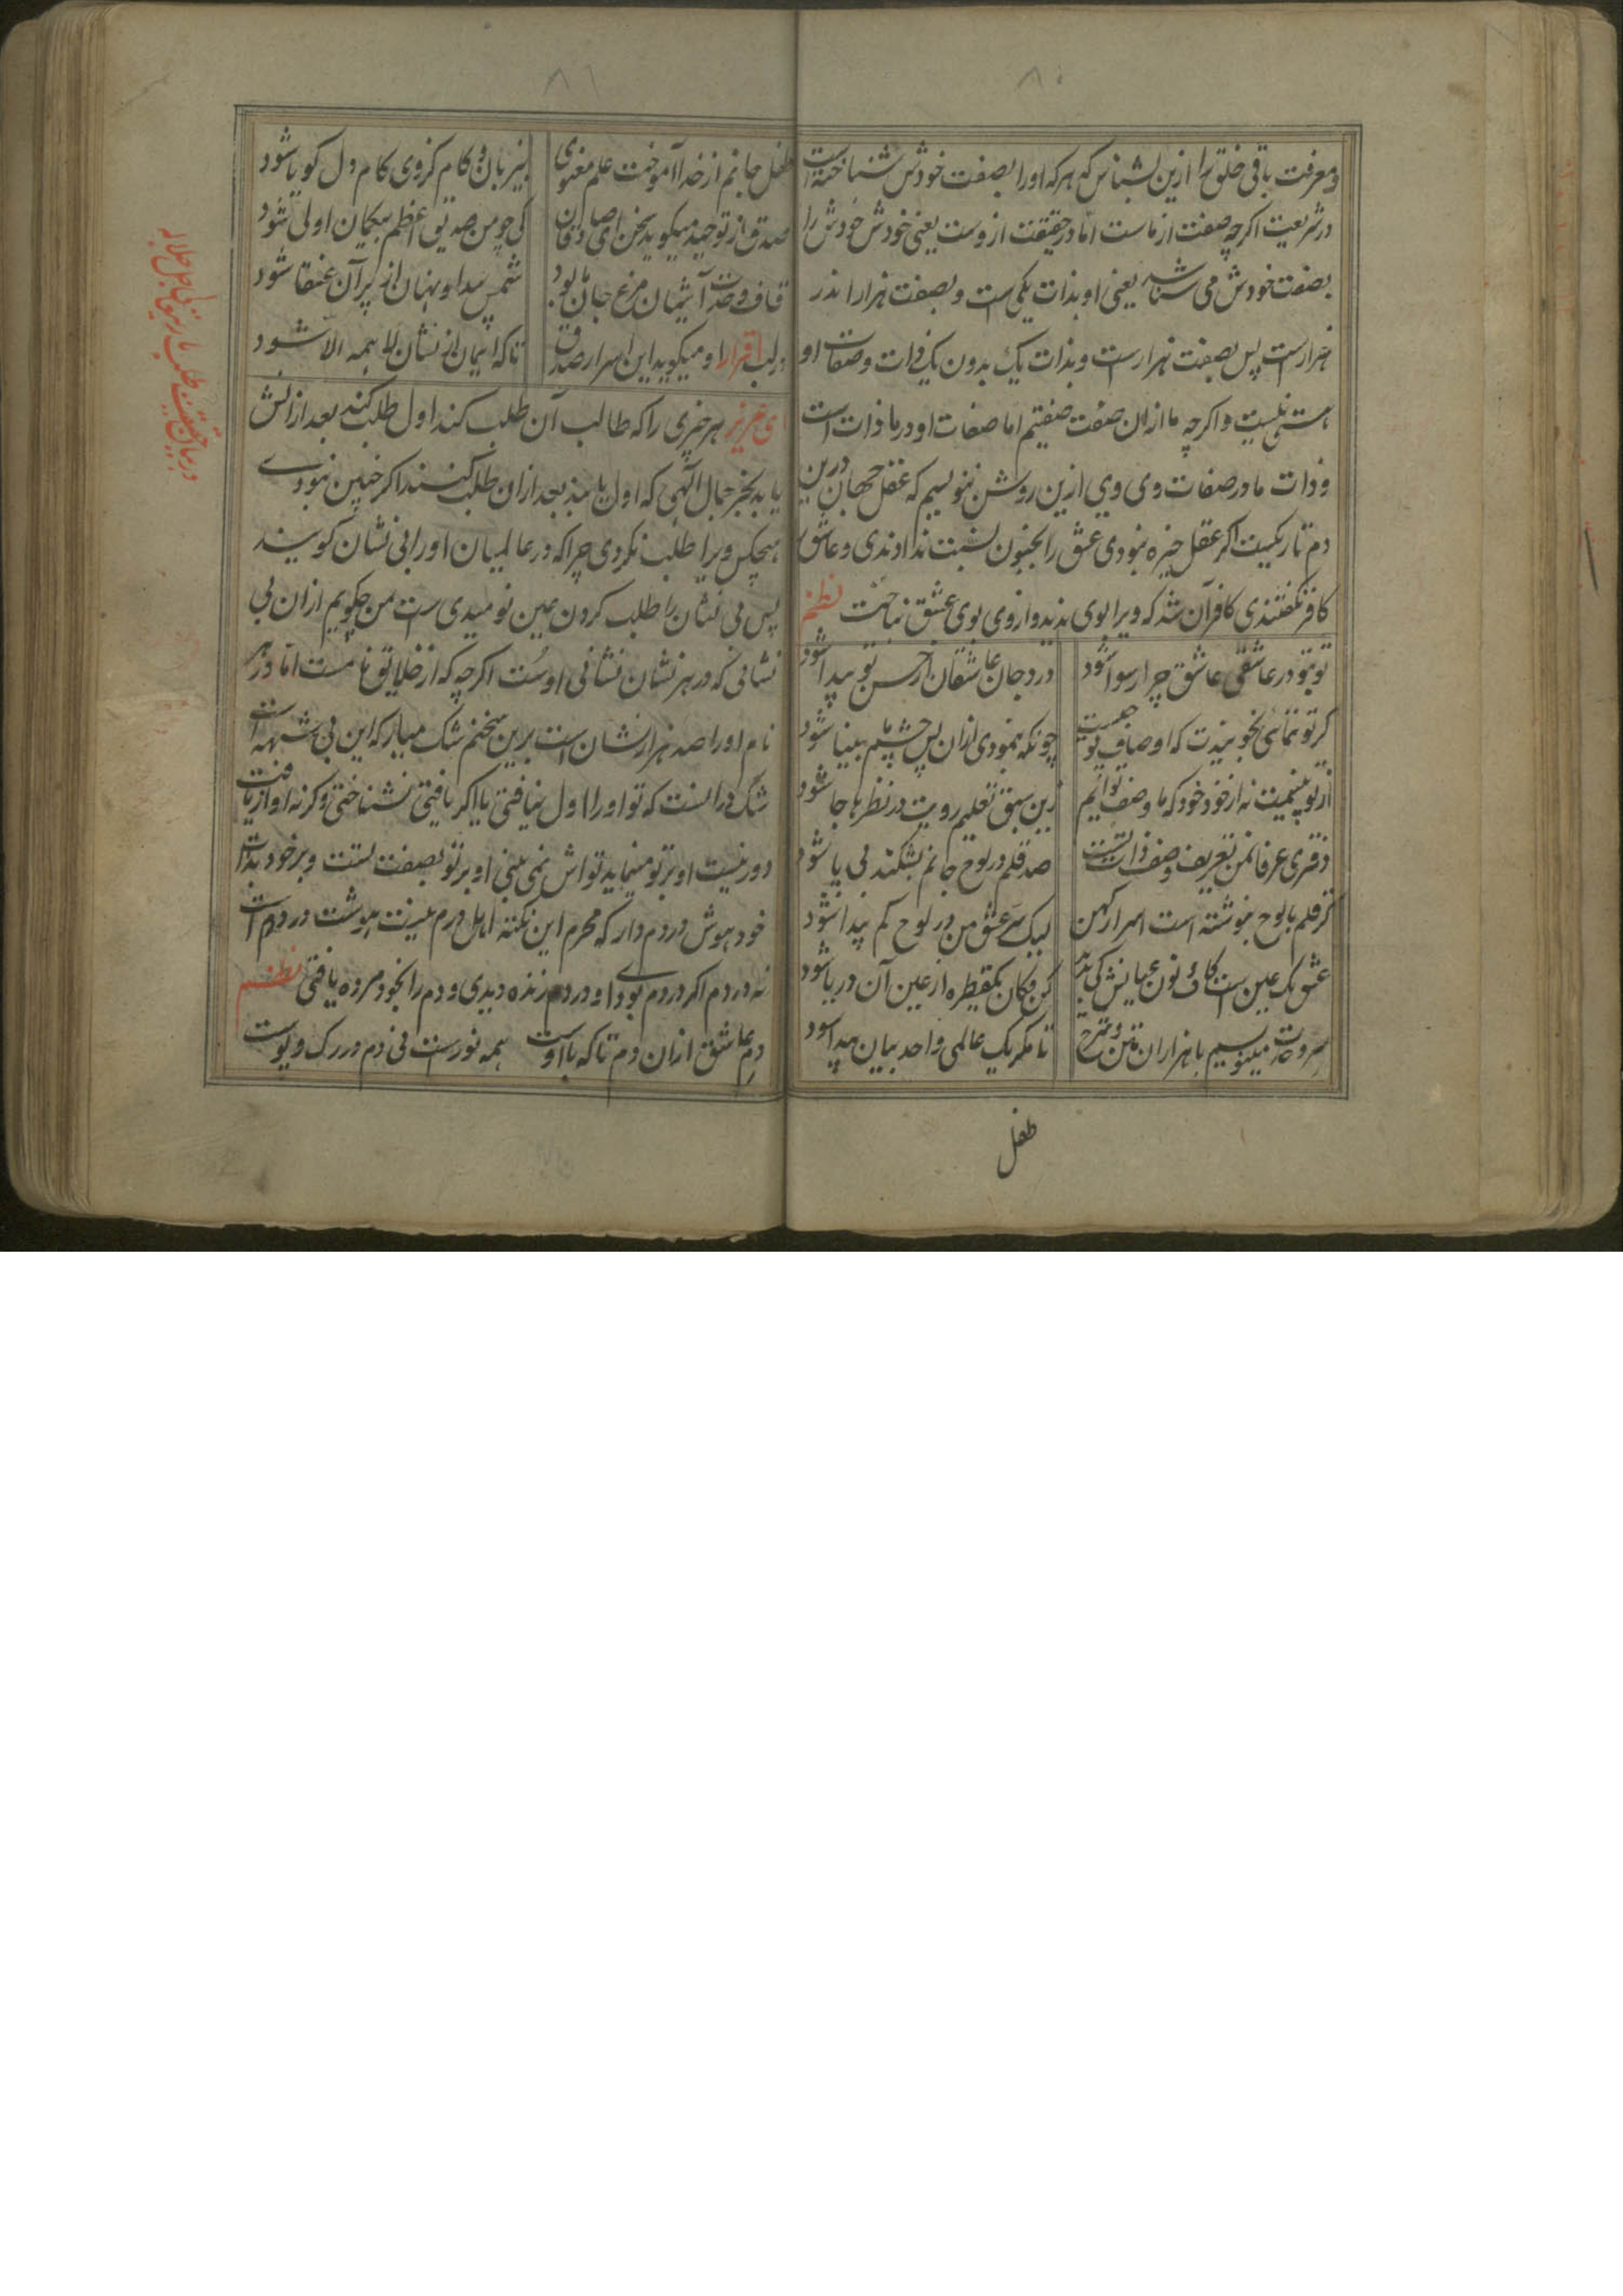 ۸۰
ومعرفت باقی خلق را ازین بشناس که هرکه اورا بصفت خودش شناخته است
در شریعت اکرچه صفت از ماست اما در حقیقت ازوست یعنی خودش خودش را
بصفت خودش می شناسد یعنی او بذات یکی است و بصفت هزار اندر
هزار است پس بصفت هزار است و بذات یک بدون یک ذات وصفات او
هستی نیست و اکرچه ما ازان صفت صفتیم اما صفات او در ما ذات است
و ذات ما در صفات وی وی ازین روشن ننویسیم که عقل جهان درین
دم تاریکست اکر عقل خیره نبودی عشق را بجنون نسبت ندادندی و عاشق را
کافر نکفتندی کافر آن شد که ویرا بوی ندید و از وی بوی عشق نباخت نظم
تو بتو در عاشقی عاشق چرا رسوا شود درد جان عاشقان از حسن تو پیدا شود
کر تو ننمائی بخو بیندت که اوصاف تو چیست چونکه بنمودی ازان پس چشم بینا شود
از تو بینیمت نه از خود خود که ما وصف توایم زین سبق تعلیم رویت در نظرها جا شود
دفتری عرفان من تعریف وصف ذات تست صد قلم در لوح جانم بشکند بی پا شود
کر قلم بالوح بنوشته است اسرار کهن لیک سر عشق من در لوح کم پیدا شود
عشق یک عین است کاف و نون عیانش کی بدید کن فکان یکقطره از عین آن دریا شود
سر وحدت مینویسیم با هزاران متن و شرح تا مکر یک عالمی واحد بیان پیدا شود
طفل
۸۱
طفل جانم از خدا آموخت علم معنوی بیزبان و کام کزوی کام دل کویا شود
صدق از توحید میکوید سخن ای صادقان کی چو من صدیق اعظم بیکمان اولی شود
قاف وحدت آشیان مرغ جان ما بود شمس پیدا و پنهان از پر آن عنقا شود
در لب اقرار او میکوید این اسرار صدق تا که ایمان از نشان لا همه الا شود
ای عزیز هر چیزی را که طالب آن طلب کند اول طلب کند بعد ازانش
یابد بجز جمال الهی که اول یابند بعد ازان طلب کنند اکر چنین نبودی
هیچکس ویرا طلب نکردی چرا که در عالمیان اورا بی نشان کویند
پس بی نشان را طلب کردن عین نومیدی است من چکویم ازان بی
نشانی که در هر نشان نشانی اوست اکرچه که از خلایق غایبست اما در هر
نام اورا صد هزار نشان است برین سخنم شک میار که این بی شبهه است
شک درانست که تو اورا اول نیافتی یا اکر یافتی نشناختی و کرنه او از یافت
دور نیست او بر تو مینماید تواش نمی بینی او بر تو بصفت تست و بر خود بذات
خود هوش در دم دار که محرم این نکته اهل درم نیست هوشت در دم است
نه در دم اکر در دم بودی او در دم زنده دیدی و دم را بخود مرده یافتی نظم
دم عاشق ازان دم تا که با اوست همه نورست نی دم در رک و پوست
در بیان حقیقت طلب باریتعالی جل جلاله